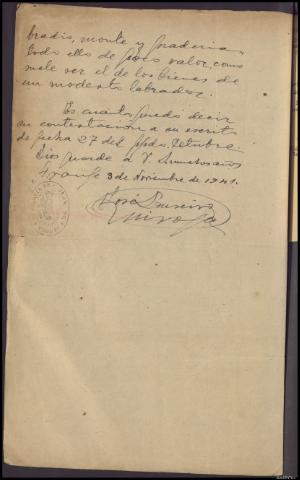 bradio, monte y praderia,
todo ello de poco valor, como
suele ser el de los bienes de
un modesto labrador.
Es cuanto puedo decir
en contestación a su escrito
de fecha 27 del ppdo. Octubre.
Dios guarde a V. muchos años
3 de Noviembre de 1941.
José